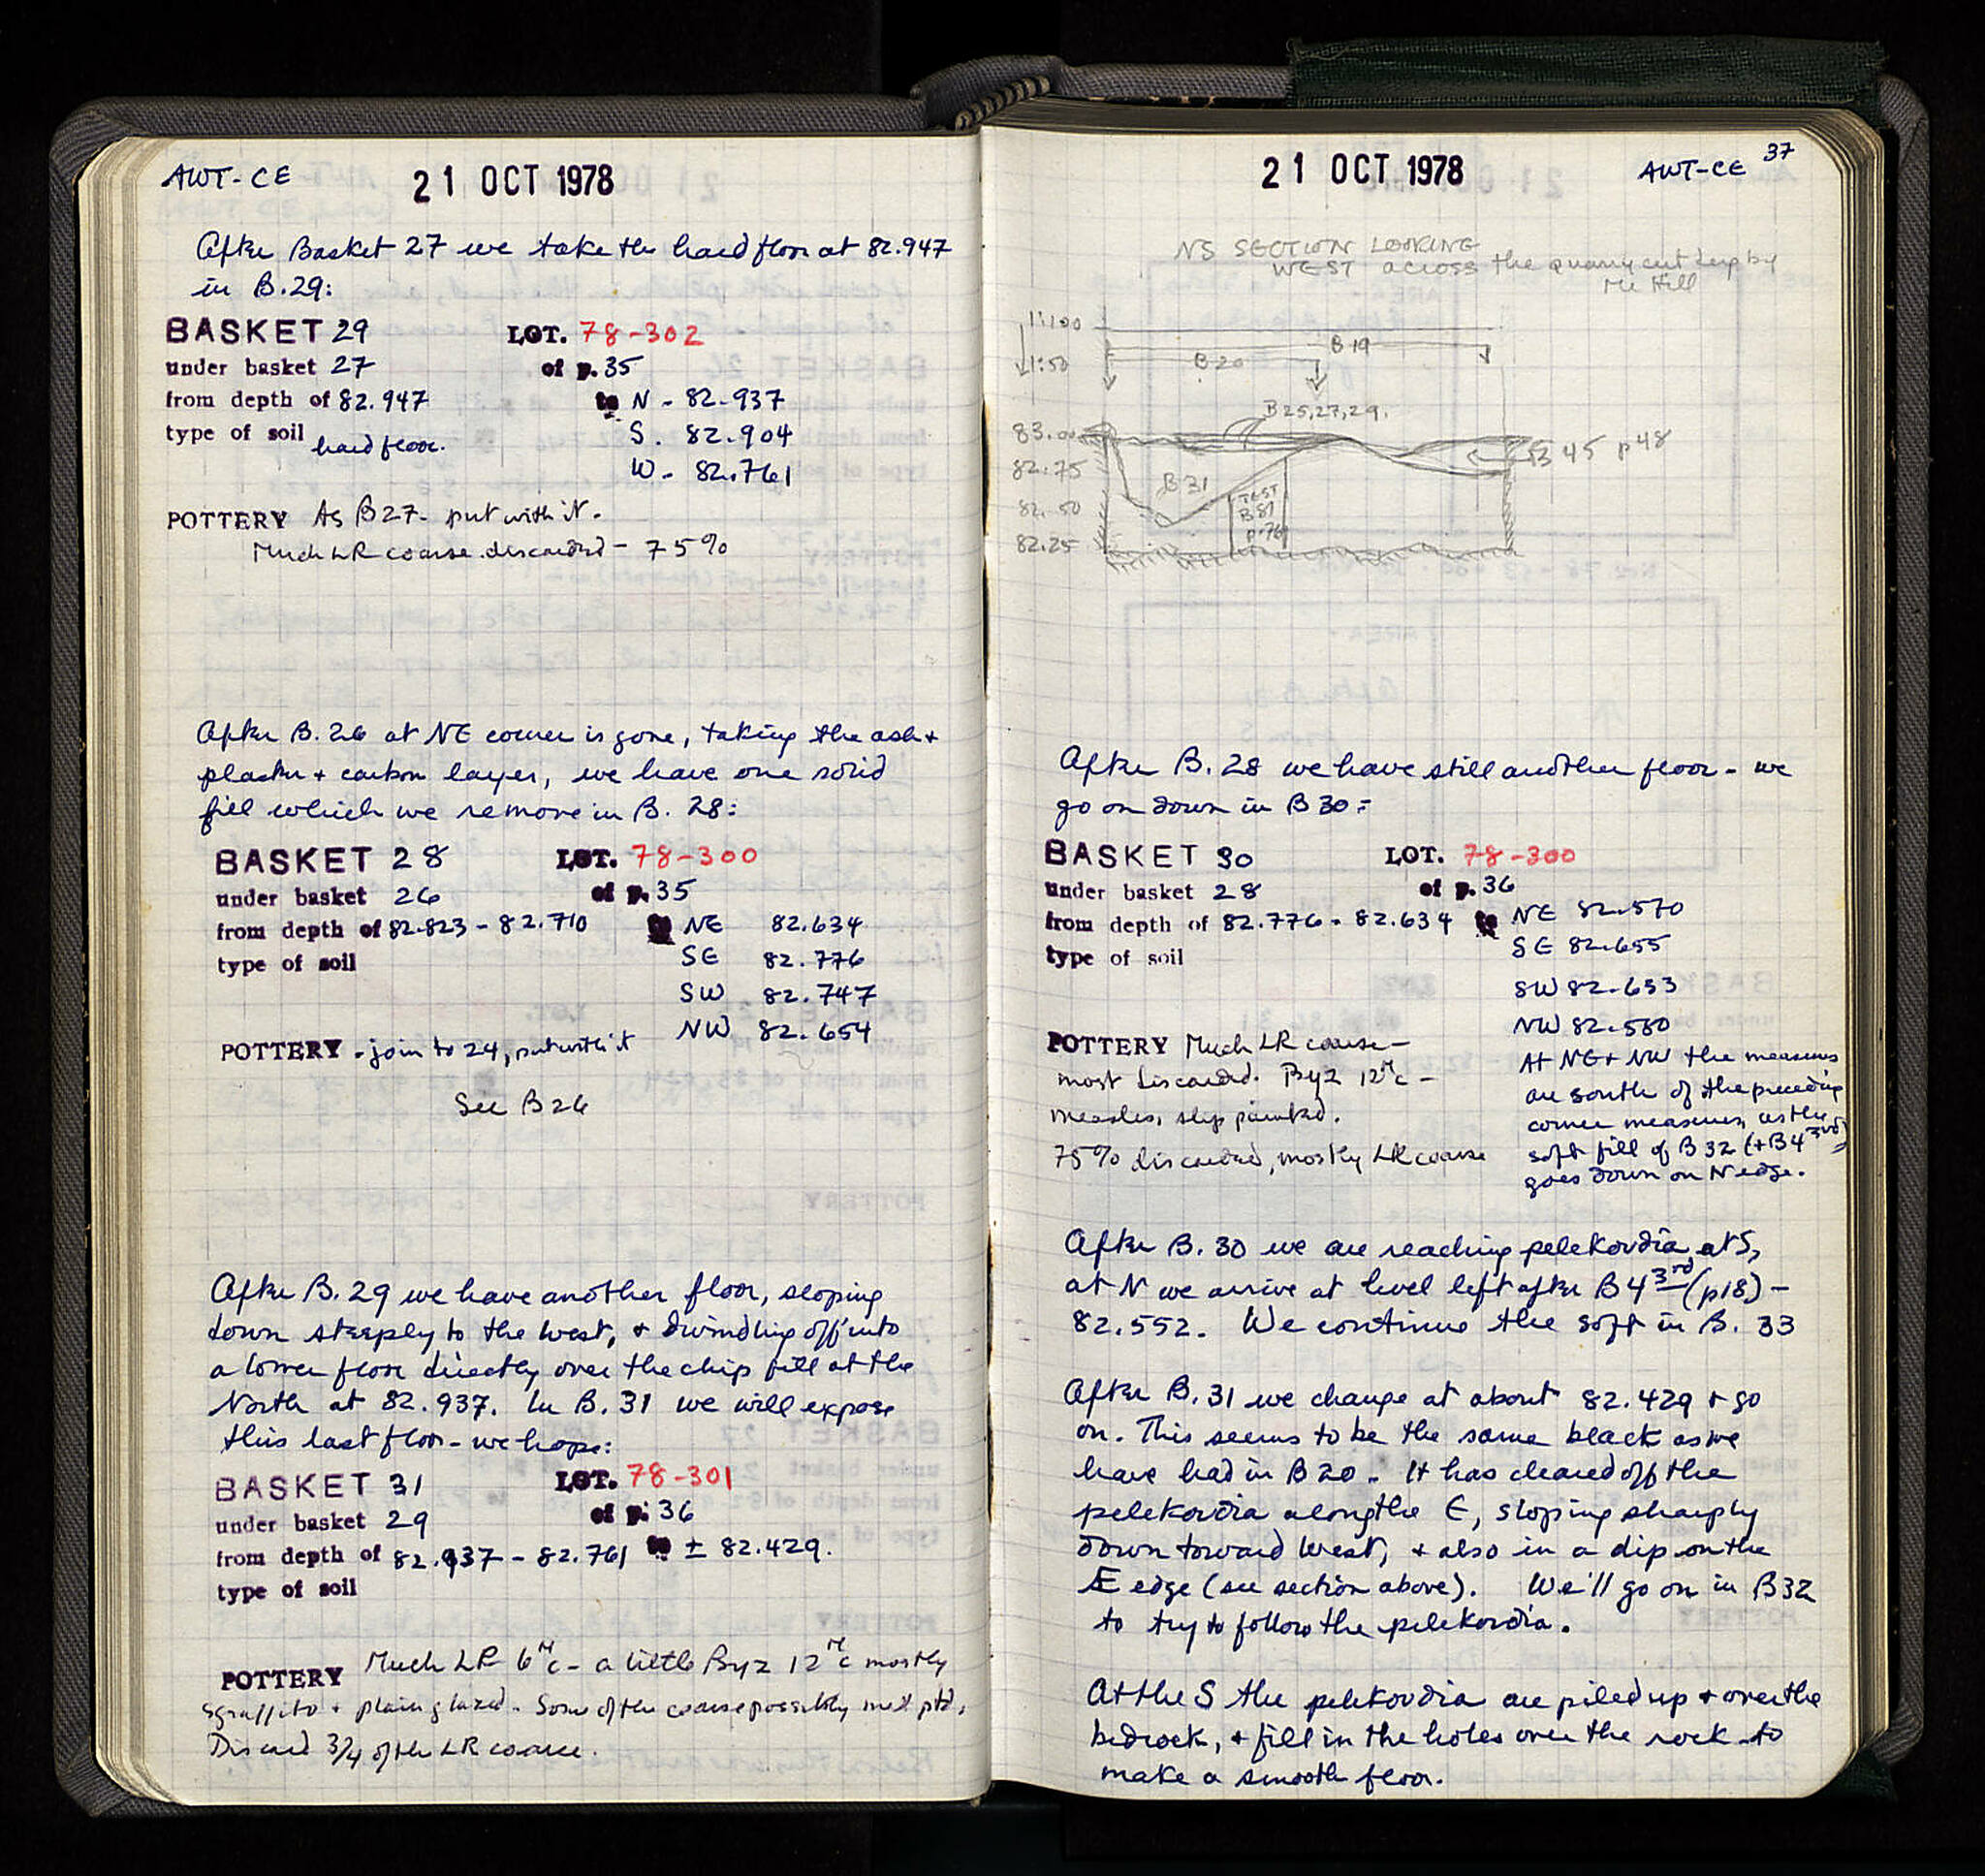 AWT-CE
21 OCT 1978
After Basket 27 we take the hard floor at 82.947
in B.29:
BASKET 29 LOT. 78-302
under basket 27 of p. 35
from depth of 82.947 to N - 82.937
type of soil hard floor. S. 82.904
W - 82.761
POTTERY As B27 - put with it.
Much LR coarse discarded - 75%
After B. 26 at NE corner is gone, taking the ash +
plaster + carbon layer, we have one solid
fill which we remove in B. 28:
BASKET 28 LOT. 78-300
under basket 26 of p. 35
from depth of 82.823 - 82.710 to NE 82.634
type of soil SE 82.776
SW 82.747
NW 82.654
POTTERY - join to 24, put with it
See B26
After B. 29 we have another floor, sloping
down steeply to the West, + dwindling off into
a lower floor directly over the chip fill at the
North at 82.937. In B. 31 we will expose
this last floor - we hope:
BASKET 31 LOT. 78-301
under basket 29 of p. 36
from depth of 82.937 - 82.761 to ± 82.429.
type of soil
POTTERY Much LR 6th c - a little Byz 12th c mostly
sgraffito + plain glazed. Some of the coarse possibly
Discard 3/4 of the LR coarse.
21 OCT 1978
AWT-CE 37
NS SECTION LOOKING
WEST across the quarry cut deep by
Mr Hill
1:100
1:50
B 19
B 20
B 25, 27, 29.
83.00
82.75
82.50
82.25
B 31
TEST
B 87
p. 76
B 45 p 48
After B. 28 we have still another floor - we
go on down in B 30:
BASKET 30 LOT. 78-300
under basket 28 of p. 36
from depth of 82.776 - 82.634 to NE 82.570
type of soil SE 82.655
SW 82.653
NW 82.580
At NE + NW the measures
are south of the preceding
corner measures, as the
soft fill of B 32 (+ B 4 3rd)
goes down on N edge.
POTTERY Much LR coarse -
most discarded. Byz 12th c -
measles, slip painted.
75% discarded, mostly LR coarse
After B. 30 we are reaching pelekoudia at S,
at N we arrive at level left after B 4 3rd (p18) -
82.552. We continue the soft in B. 33
After B. 31 we change at about 82.429 + go
on. This seems to be the same black as we
have had in B 20 - It has cleared off the
pelekoudia along the E, sloping sharply
down toward West, + also in a dip on the
E edge (see section above). We'll go on in B32
to try to follow the pelekoudia.
At the S the pelekoudia are piled up + over the
bedrock, + fill in the holes over the rock to
make a smooth floor.